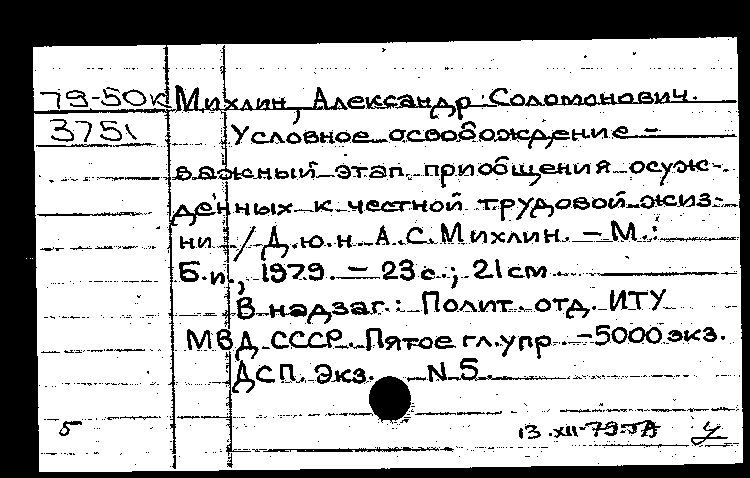 79-50к Михлин, Александр Соломонович.
3751 Условное освобождение –
важный этап приобщения осуж-
денных к честной трудовой жиз-
ни / Д.ю.н А.С.Михлин. – М.:
Б.и., 1979. – 23 с.; 21 см
В надзаг.: Полит. отд. ИТУ
МВД СССР. Пятое гл. упр. –5000 экз.
ДСП. Экз. N 5.
5 13.XII-79